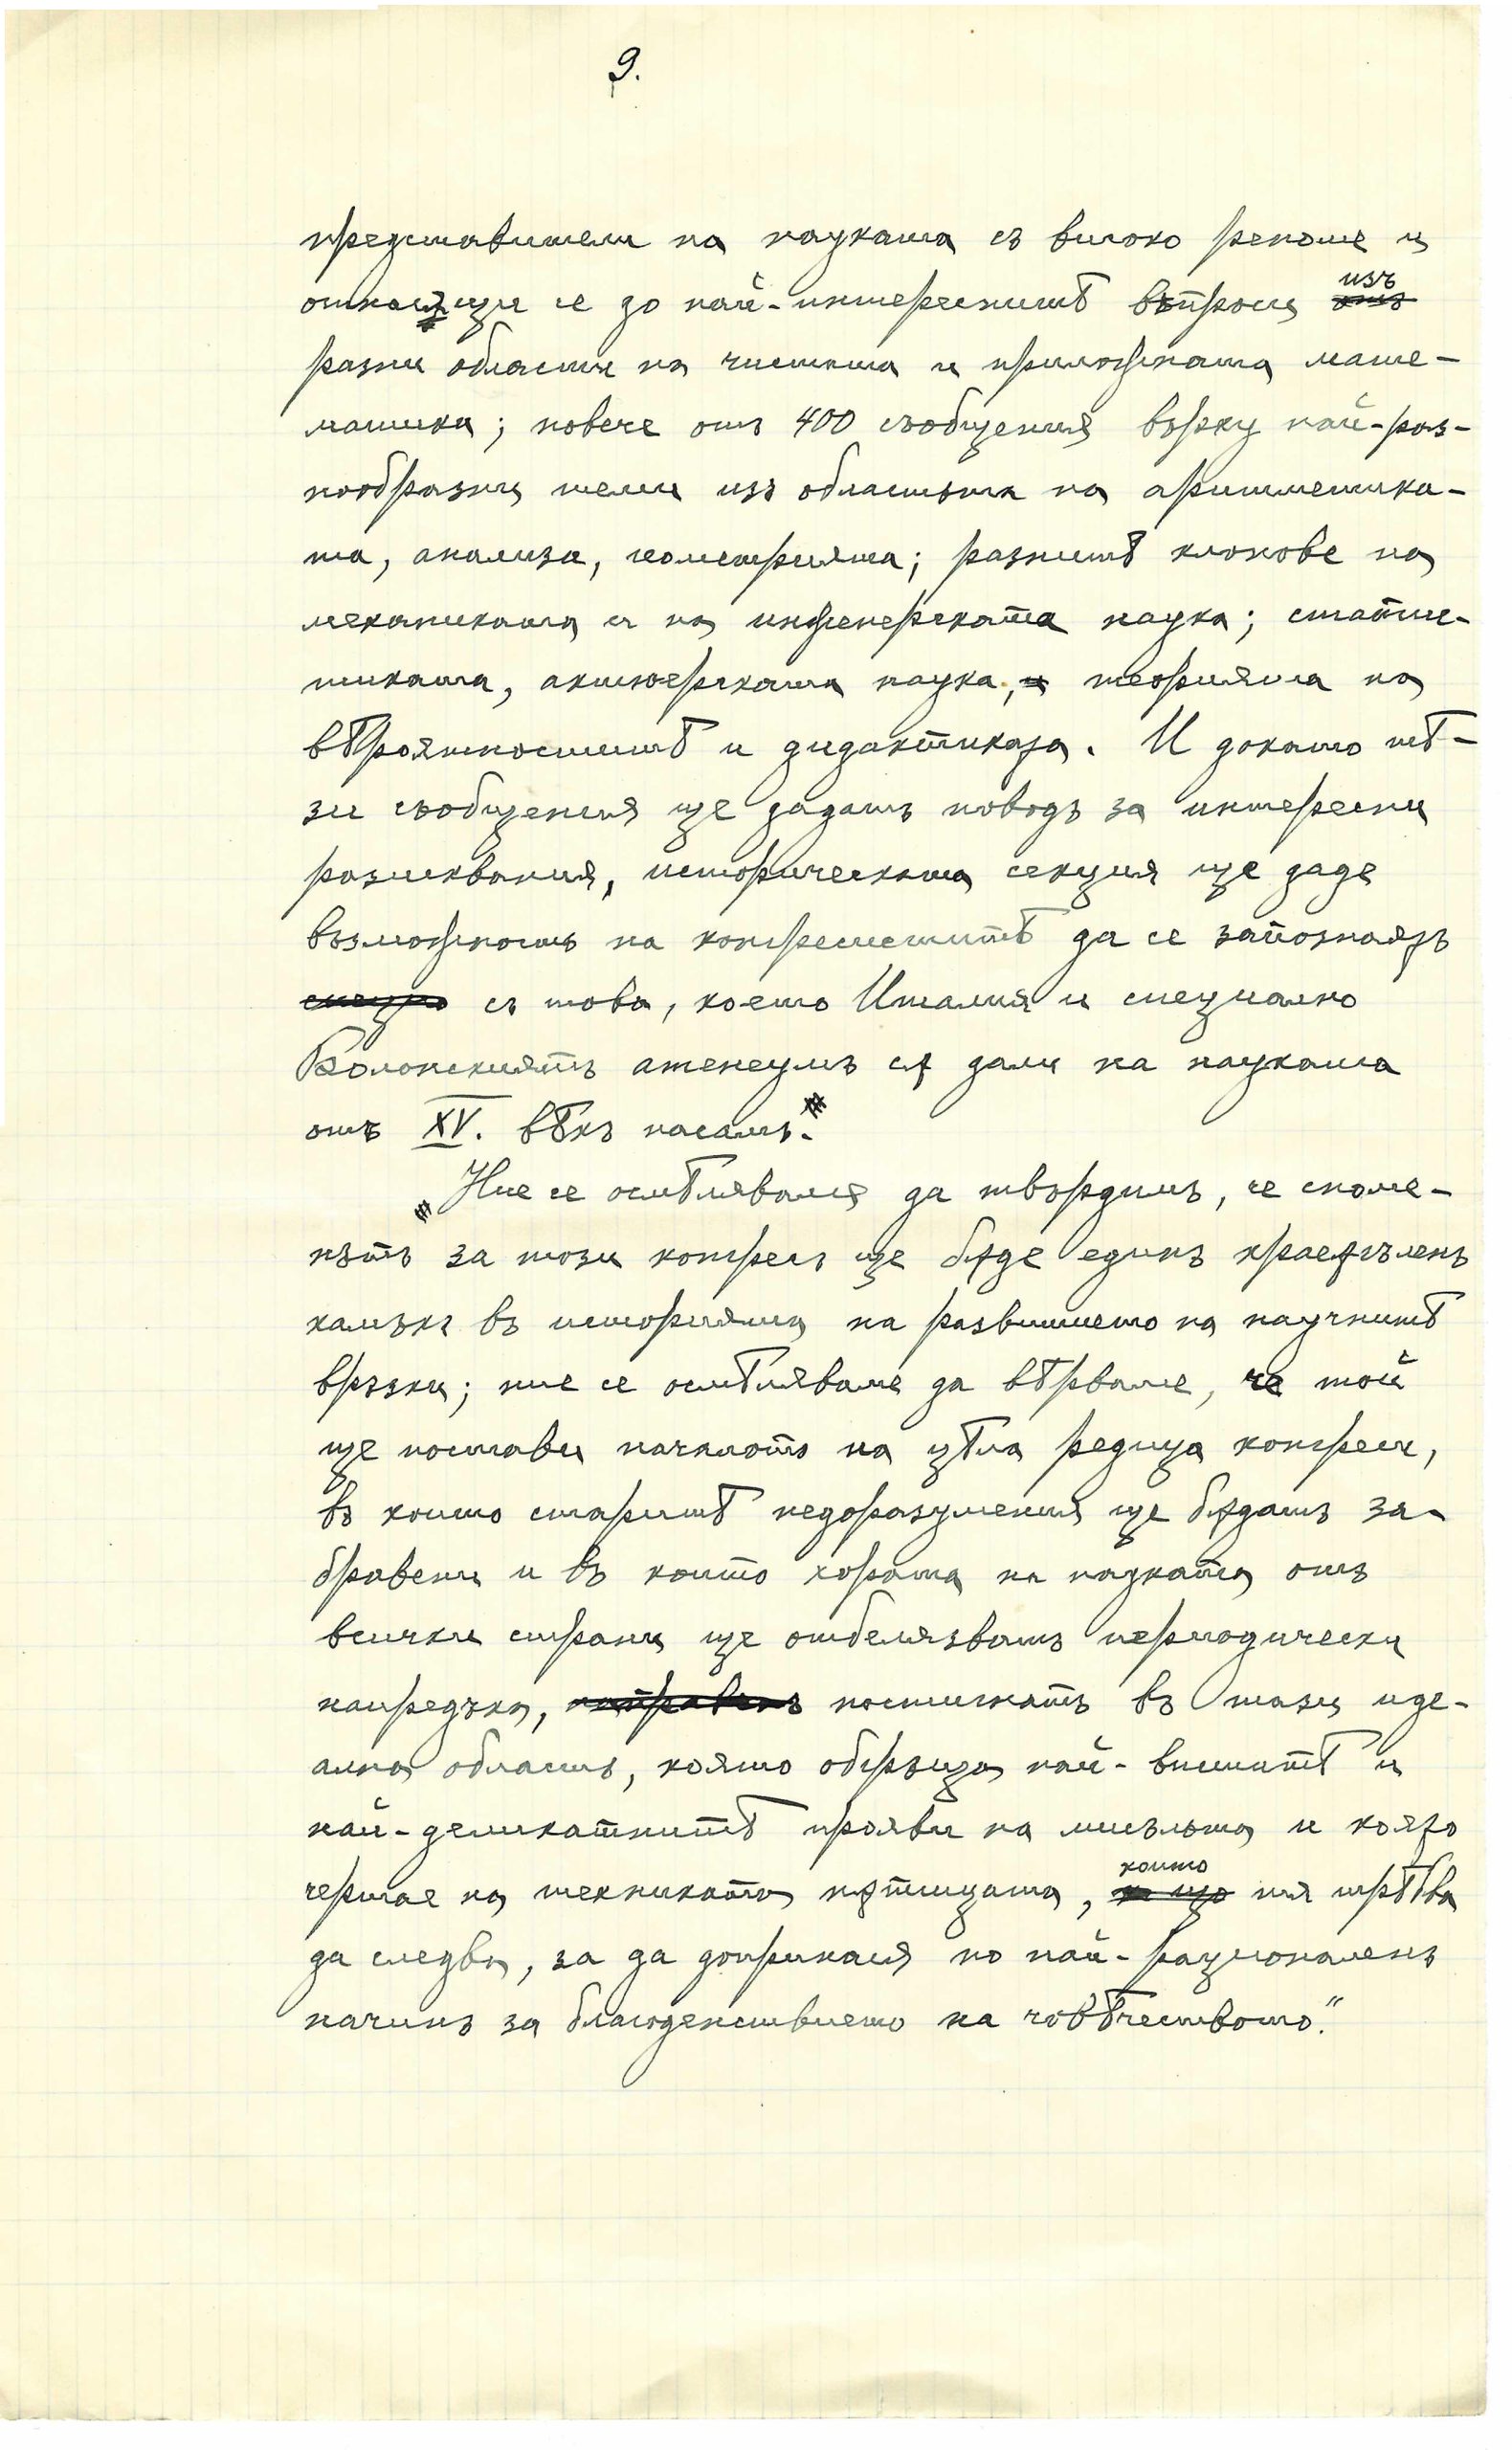 9.
представители на науката съ високо реноме и
отнасящи се до най-интереснитѣ въпроси изъ
разни области на чистата и приложната мате-
матика; повече отъ 400 съобщения върху най-раз-
нообразни теми изъ областьта на аритметика-
та, анализа, геометрията; разнитѣ клонове на
механиката и на инженерската наука; статис-
тиката, актюерската наука, теорията на
вѣроятноститѣ и дидактиката. И докато тѣ-
зи съобщения ще дадатъ поводъ за интересни
разисквания, историческата секция ще даде
възможность на конгресиститѣ да се запознаятъ
съ това, което Италия и специално
Болонскиятъ атенеумъ сѫ дали на науката
отъ XV. вѣкъ насамъ."
„Ние се осмѣляваме да твърдимъ, че споме-
нътъ за този конгресъ ще бѫде единъ краеѫгъленъ
камъкъ въ историята на развитието на научнитѣ
връзки; ние се осмѣляваме да вѣрваме, че той
ще постави началото на цѣла редица конгреси,
въ които старитѣ недоразумения ще бѫдатъ за-
бравени и въ които хората на науката отъ
всички страни ще отбелязватъ периодически
напредъка, постигнатъ въ тази иде-
ална область, която обгръща най-висшитѣ и
най-деликатнитѣ прояви на мисъльта и която
чертае на техниката пѫтищата, които тя трѣбва
да следва, за да допринася по най-рационаленъ
начинъ за благоденствието на човѣчеството."